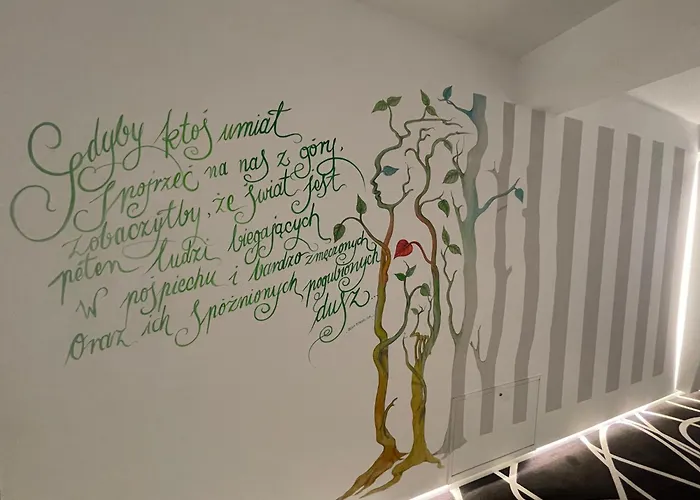 Gdyby ktoś umiał
spojrzeć na nas z góry,
zobaczyłby, że świat jest
pełen ludzi biegających
w pośpiechu i bardzo zmęczonych
oraz ich spóźnionych pogubionych
dusz